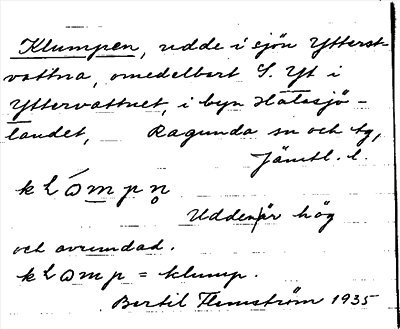 Klumpen, udde i sjön Ytterst-
vattna, omedelbart S. Yt i
Yttervattnet, i byn
landet, Ragunda sn och tg,
Jämtl. l.
Udden är hög
och avrundad.
= klump.
Bertil Flemström 1935